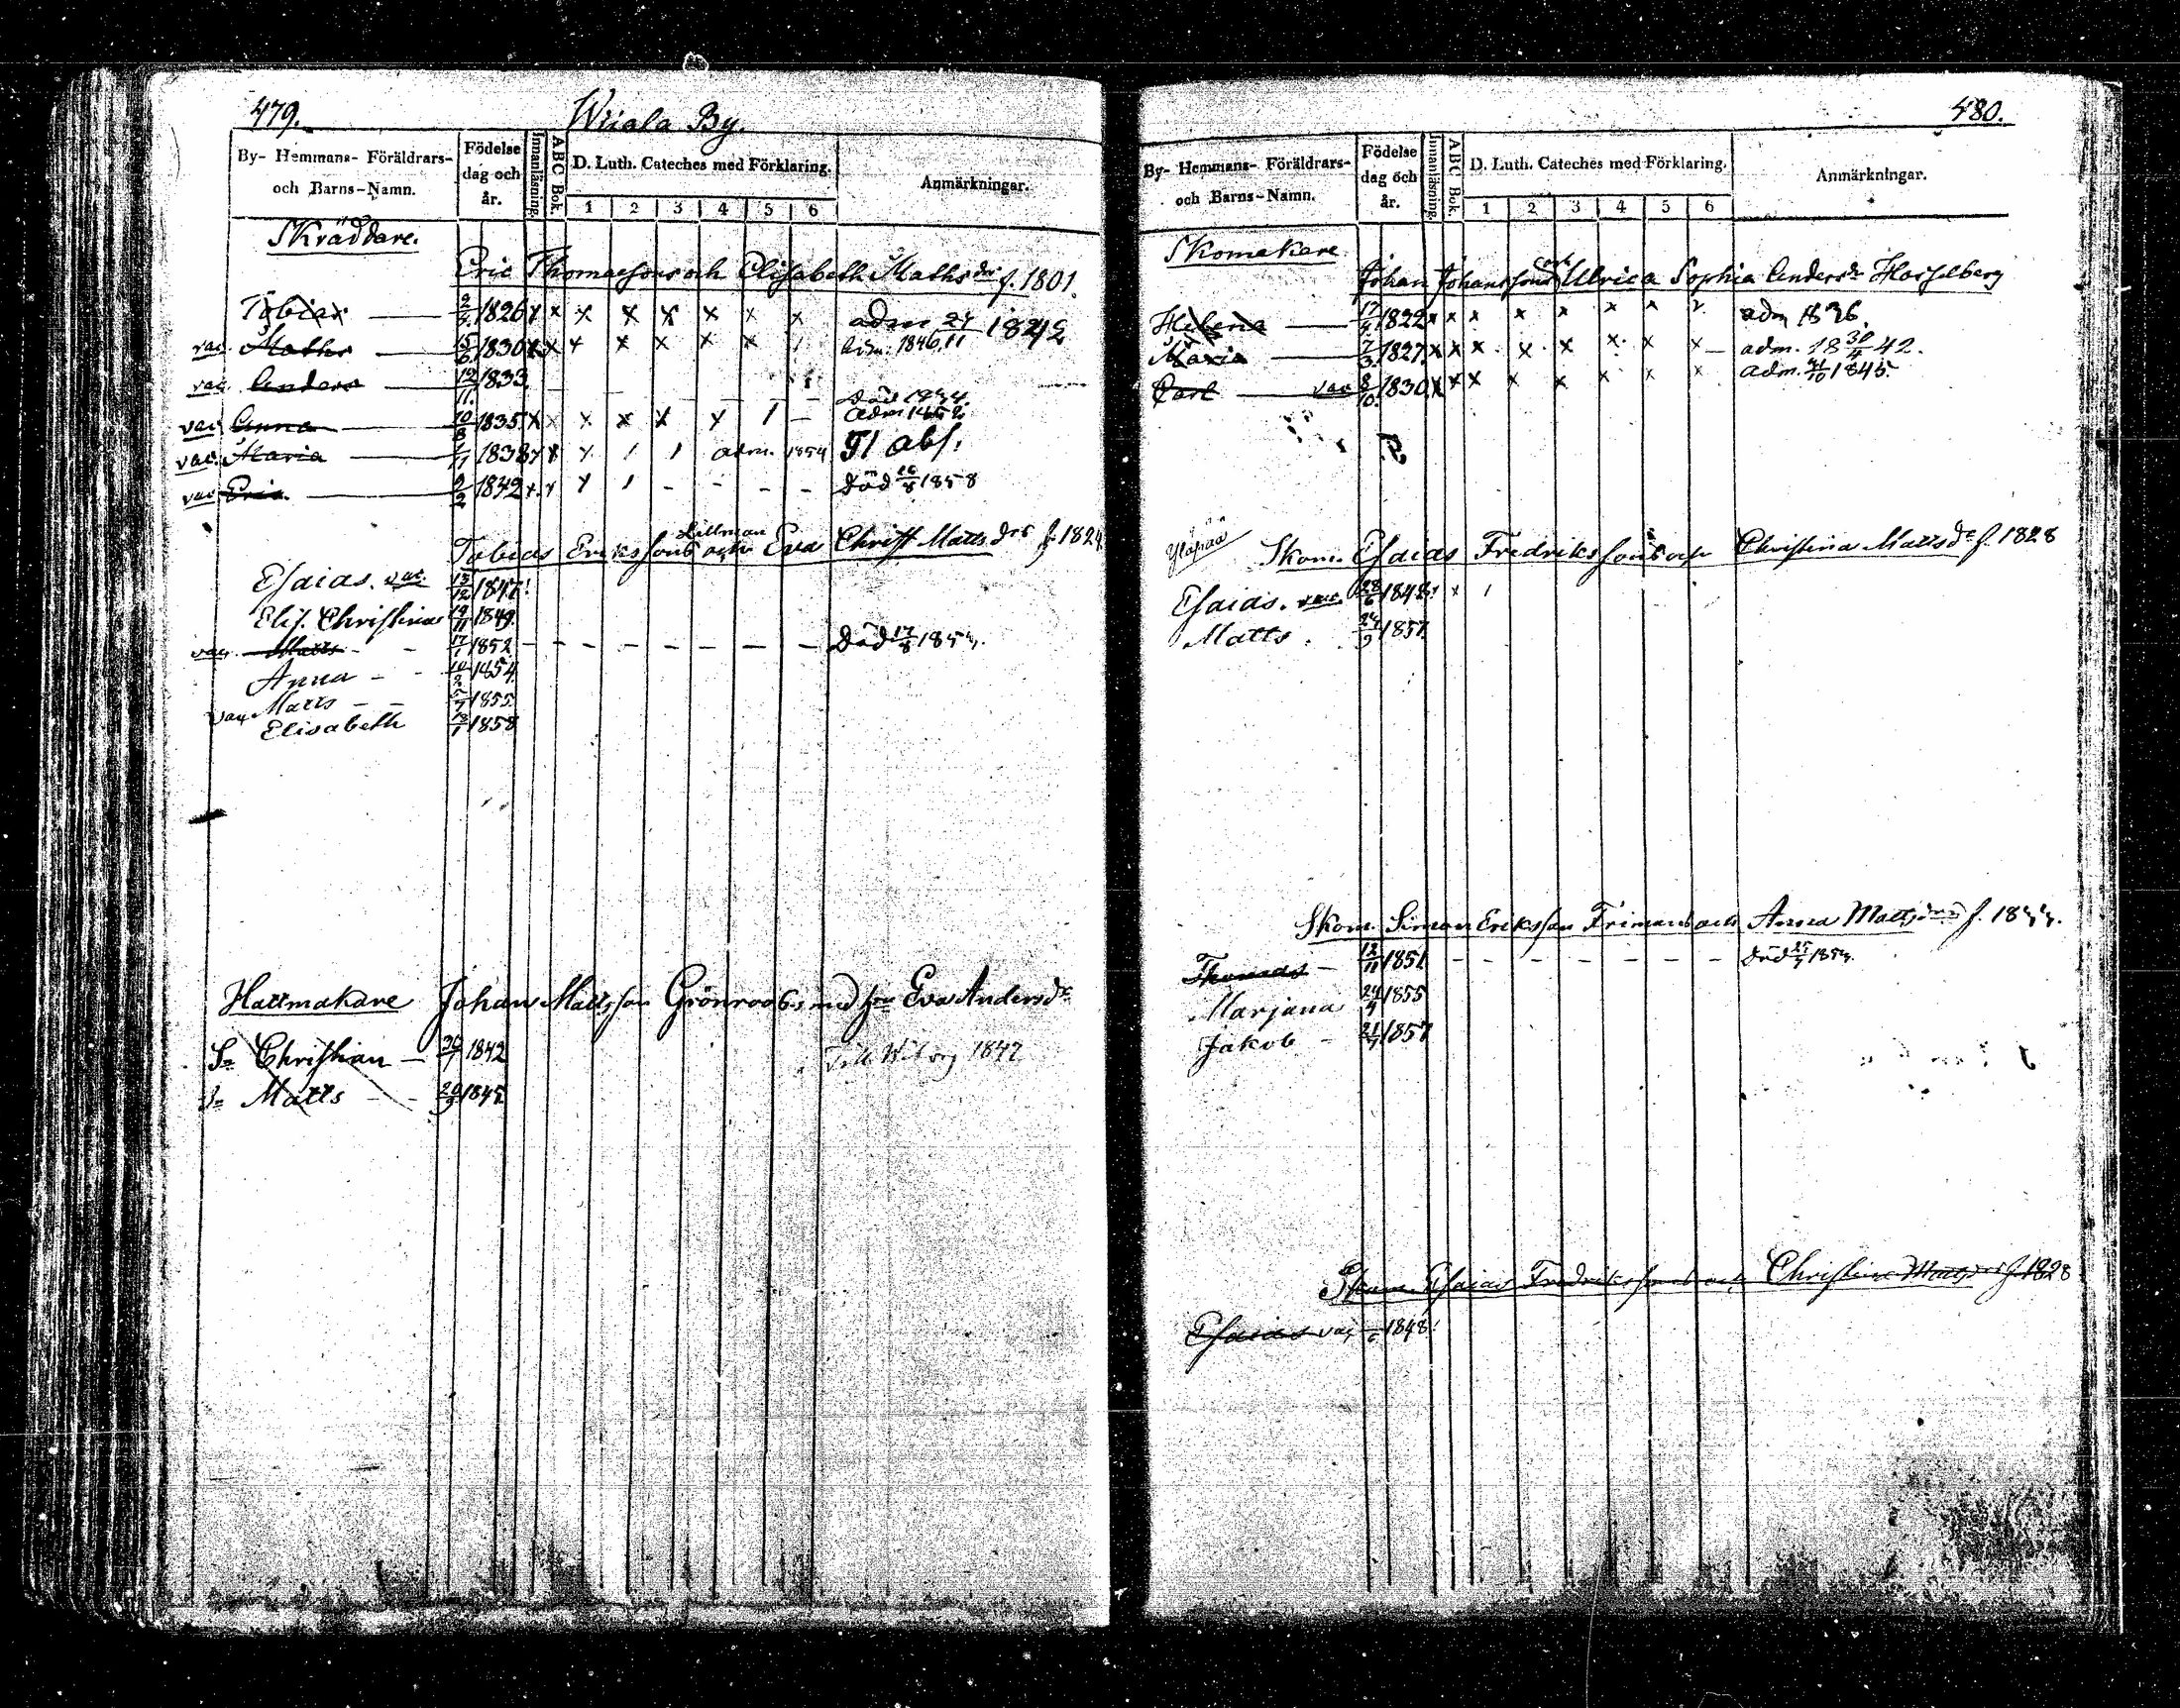 479.
Wiiala By.
By- Hemmans- Föräldrars- och Barns-Namn.
Födelse dag och år.
Innanläsning.
ABC Bok.
D. Luth. Cateches med Förklaring.
1 2 3 4 5 6
Anmärkningar.
Skräddare.
Eric Thomassons och Elisabeth Mathsdr f. 1801.
Tobias — 1826 x x x x x x x x adm 24 1842
vac. Maths — 1830 x x x x x x x / adm. 1846
vac. Anders — 12/11 1833 Död
vac Anna — 10/8 1835 x x x x x x / – adm
vac. Maria — 1838 x x x / / adm. 1854 Tl abs.
vac Eric — 2 1842 x x x / – – – – Död 1858
Tobias Erikssons Lillman och Eva Christ. Mattsdr f. 1824
Esaias. vac. 13/12 1847
Elis. Christina 1849
vac. Matts – – 17/1 1852 Död 17/8
Anna – – 1854
vac Matts – – 1855
Elisabeth 1858
Hattmakare Johan Mattsson Grönroos med hu Eva Andersdr
Sn Christian — 1842 Till Wiborg 1847
Sn Matts – –
480.
By- Hemmans- Föräldrars- och Barns-Namn.
Födelse dag och år.
Innanläsning.
ABC Bok.
D. Luth. Cateches med Förklaring.
1 2 3 4 5 6
Anmärkningar.
Skomakare
Johan Johanssons och Ulrica Sophia Andersdr
Helena — 17 1822 x x x x x x x adm 1836.
Maria — 7/3 1827 x x x x x x x x – adm. 18 30/4 42.
Carl — vac 8/10 1830 x x x x x x x x adm. 1845
Skom. Esaias Fredrikssons och Christina Mattsdr f. 1828
Esaias. vac. 28/6 x /
Matts. 1857
Skom. Simon Eriksson Frimans och Anna Mattsdr f.
Thomas – 12/11 1851 Död
Marjana 24 1855
Jakob – 21 1857
Skom. Esaias Fredrikssons och Christina Mattsdr f. 1828
Esaias vac 6 1848